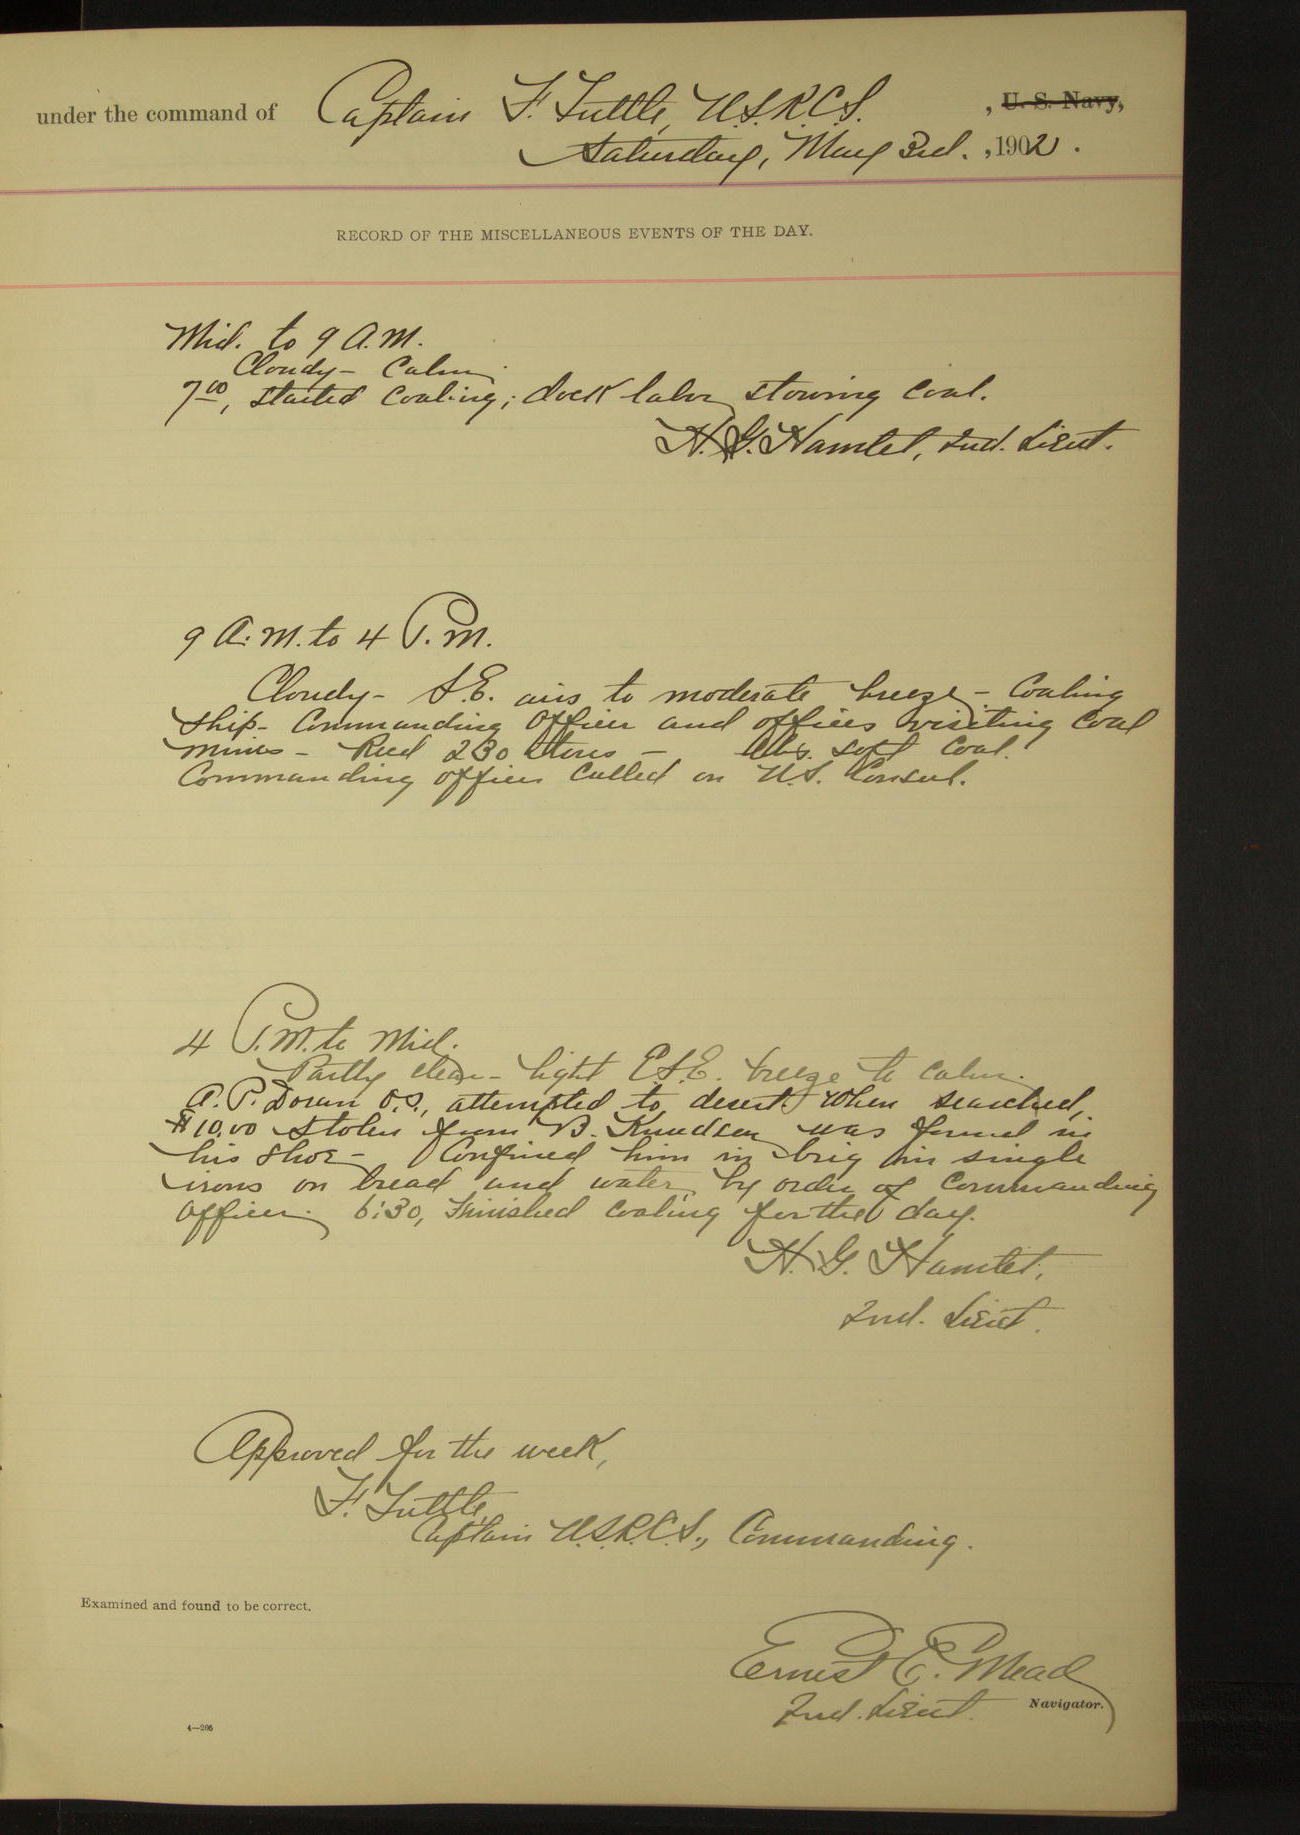 under the command of Captain F. Tuttle, U.S.R.C.S. , U. S. Navy,
Saturday, May 3rd. , 1902.
RECORD OF THE MISCELLANEOUS EVENTS OF THE DAY.
Mid. to 9 A.M.
Cloudy - Calm.
7 00, started coaling; dock labor stowing coal.
H. G. Hamlet, 2nd. Lieut.
9 A.M. to 4 P.M.
Cloudy - S.E. airs to moderate breeze - Coaling
ship - Commanding Officer and officers visiting Coal
mines - Recd 230 tons - lbs. soft coal.
Commanding officer called on U.S. Consul.
4 P.M. to Mid.
Partly clear - light E.S.E. breeze to calm.
A. P. Doran O.S., attempted to desert. When searched,
$10.00 stolen from B. Knudsen was found in
his shoe - Confined him in brig in single
irons on bread and water, by order of Commanding
officer. 6:30, Finished coaling for the day.
H. G. Hamlet,
2nd. Lieut.
Approved for the week,
F. Tuttle,
Captain U.S.R.C.S., Commanding.
Examined and found to be correct.
Ernest E. Mead
2nd. Lieut. Navigator.
4—206